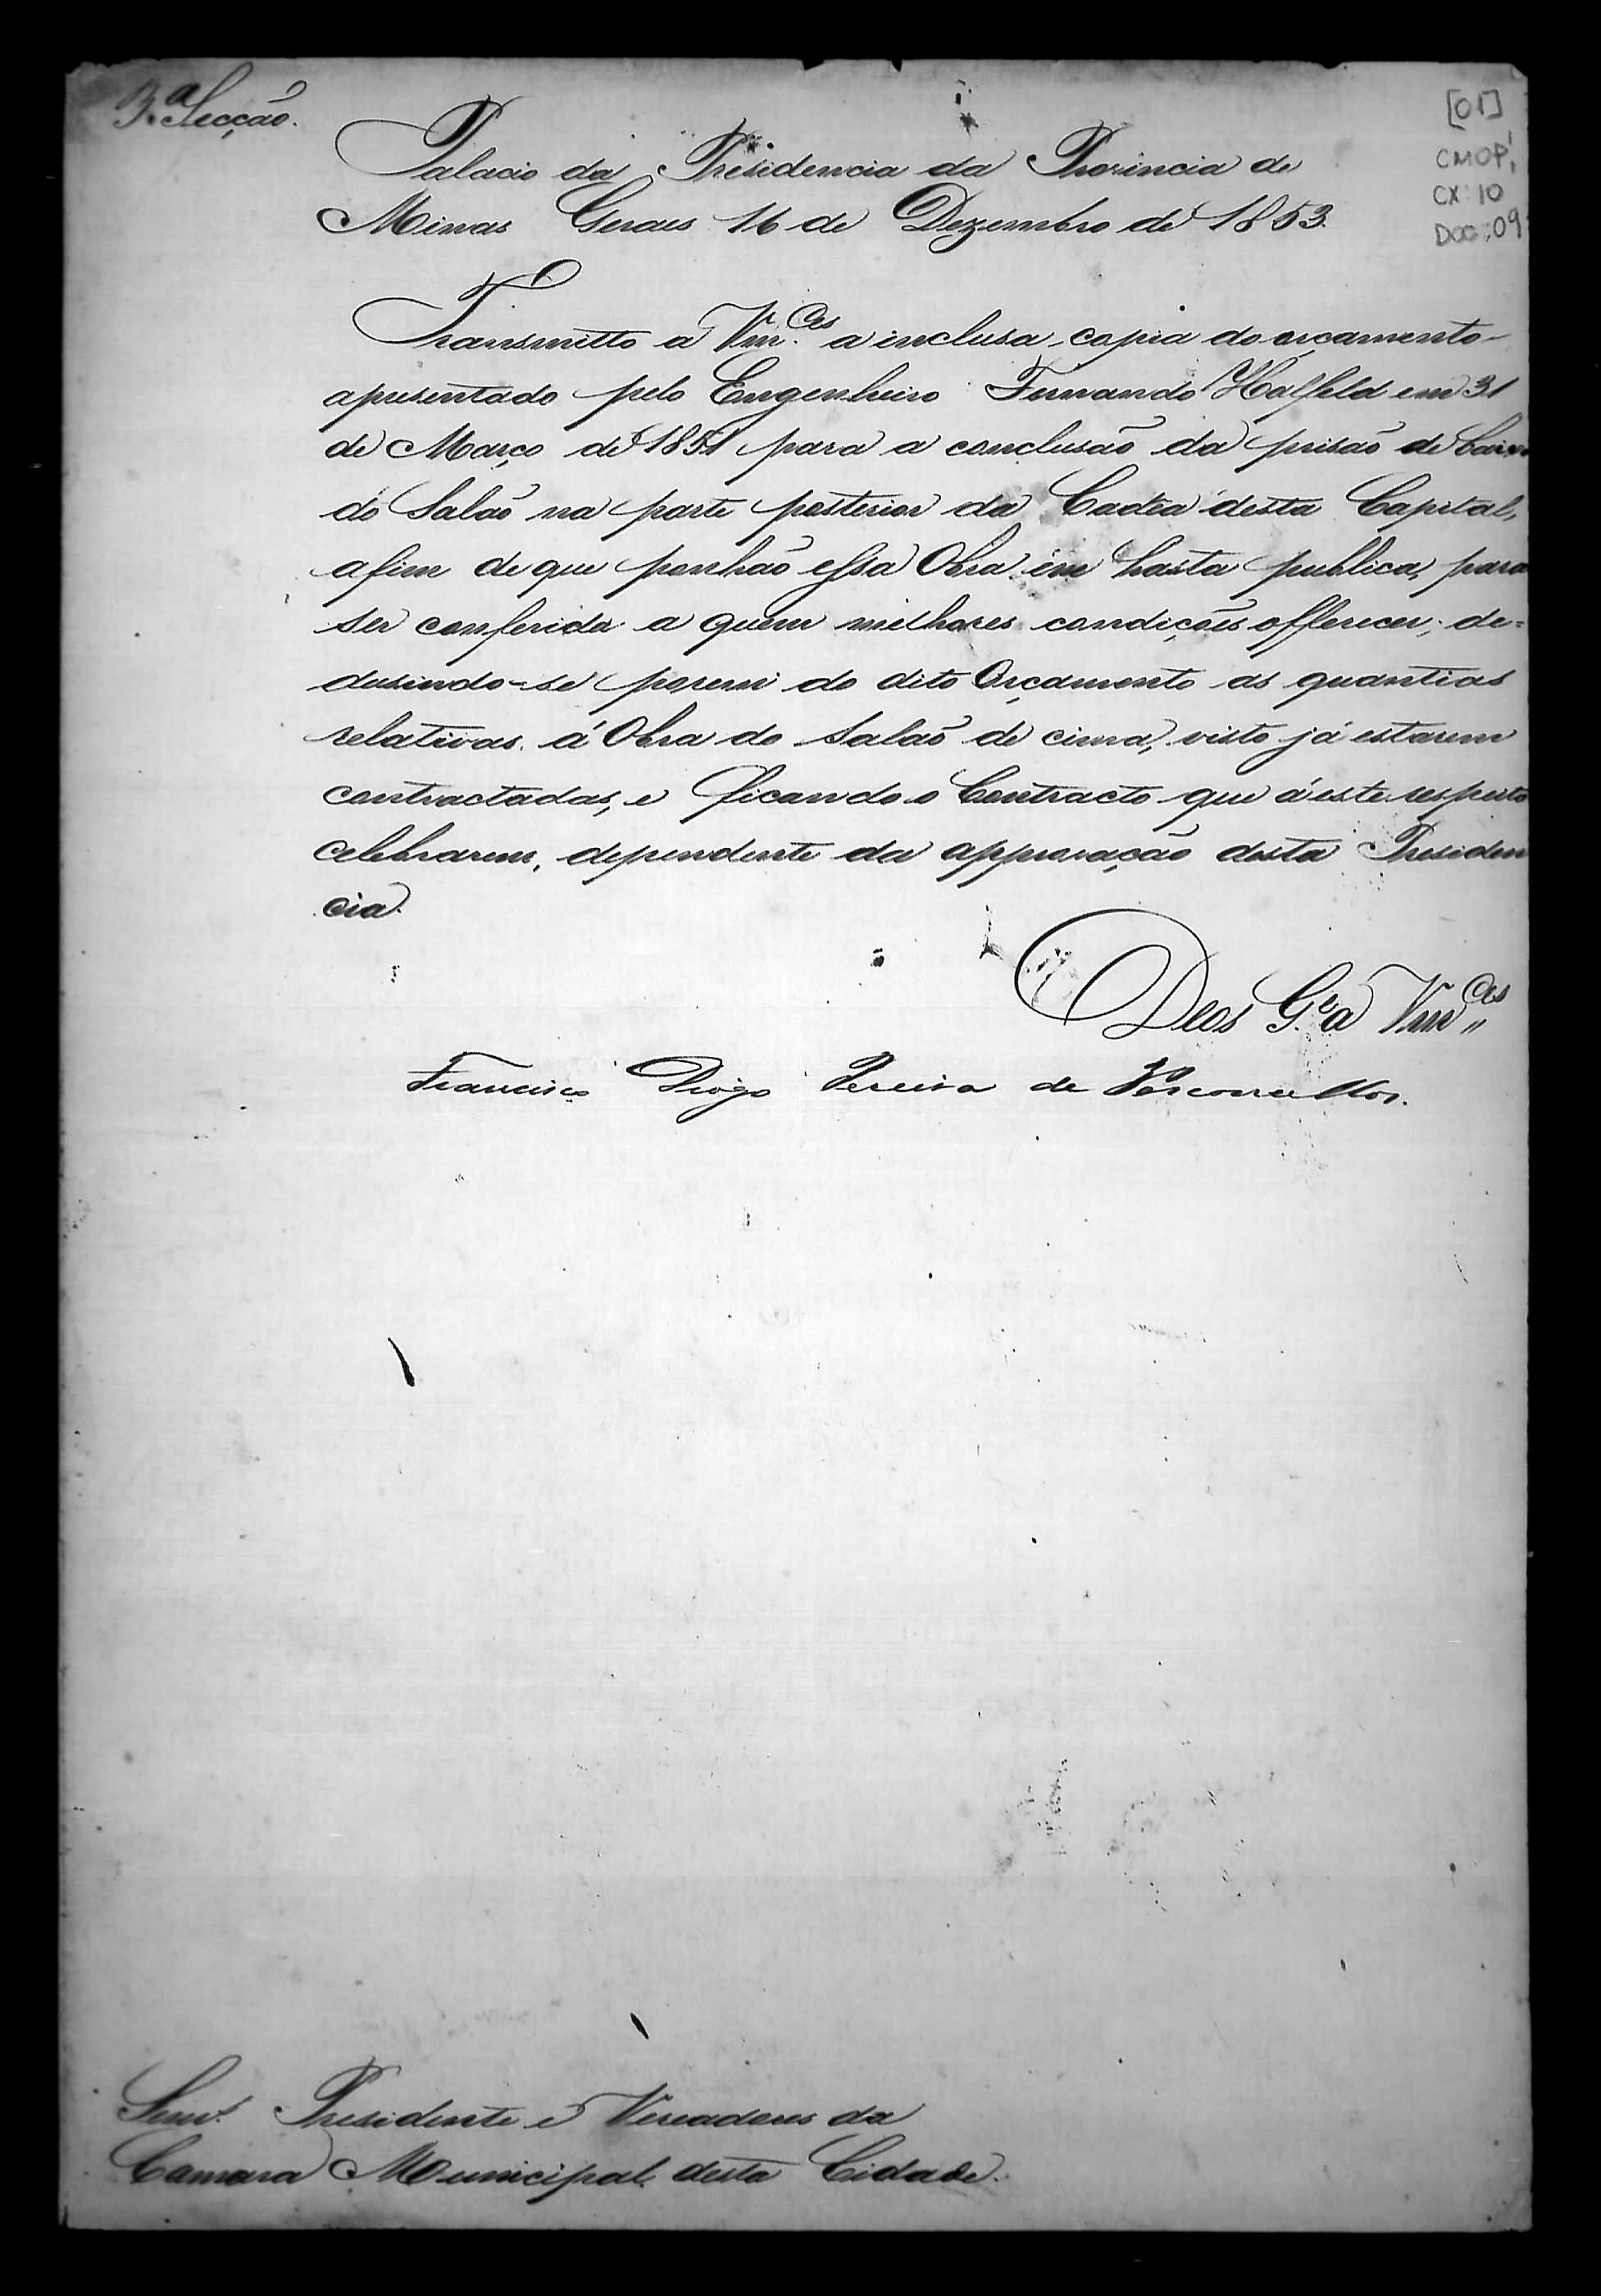 3.ª Secção.
[01]
CMOP,
CX: 10
DOC: 09
Palacio da Presidencia da Provincia de
Minas Geraes 16 de Dezembro de 1853.
Transmitto a Vm.ces a inclusa copia do orçamento
apresentado pelo Engenheiro Fernando Halfeld em 31
de Março de 1851 para a conclusão da prisão de baixo
do Salão na parte posterior da Cadea desta Capital,
afim de que ponhão essa Obra em hasta publica, para
ser conferida a quem milhores condições offerecer; de=
dusindo-se porem do dito Orçamento as quantias
relativas á Obra do Salão de cima, visto já estarem
contractadas, e ficando o Contracto que á este respeito
celebrarem, dependente da approvação desta Presiden
cia.
Deos G.e a Vm.ces
Francisco Diogo Pereira de Vasconcellos.
Senr.s Presidente e Vereadores da
Camara Municipal desta Cidade.